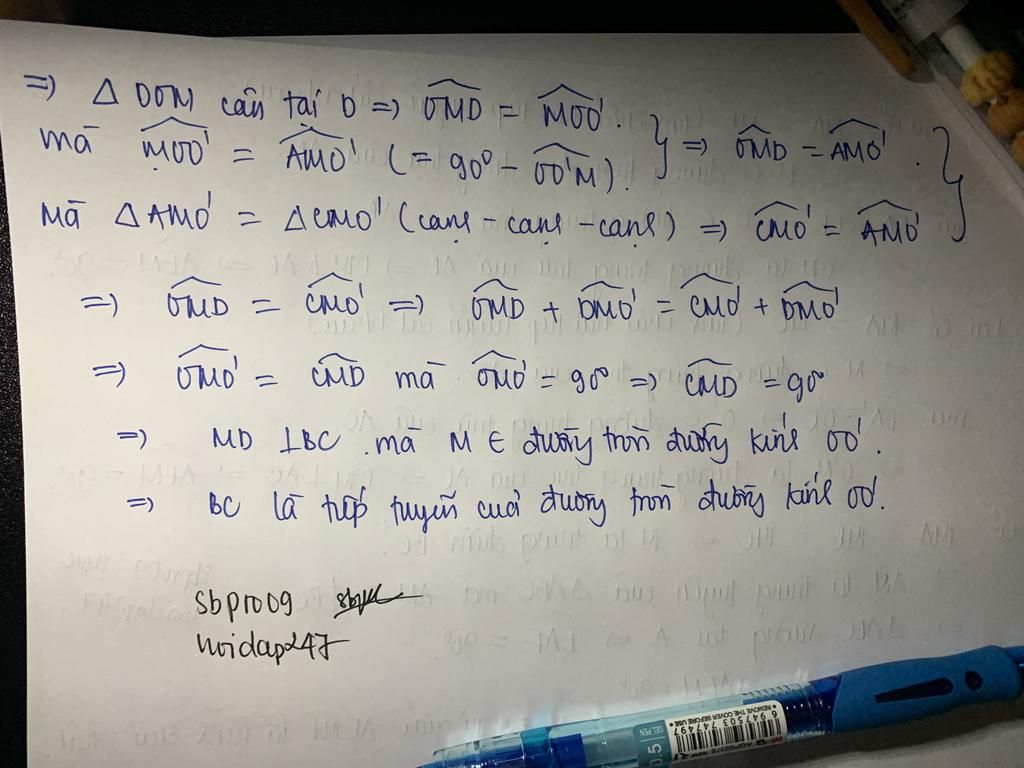 => Δ DOM cân tại D => \widehat{OMD} = \widehat{MOO'}.
mà \widehat{MOO'} = \widehat{AMO'} (= 90° - \widehat{OO'M}). } => \widehat{OMD} = \widehat{AMO'}. }
mà Δ AMO' = Δ CMO' (cạnh - cạnh - cạnh) => \widehat{CMO'} = \widehat{AMO'}
=> \widehat{OMD} = \widehat{CMO'} => \widehat{OMD} + \widehat{DMO'} = \widehat{CMO'} + \widehat{DMO'}
=> \widehat{OMO'} = \widehat{CMD} mà \widehat{OMO'} = 90° => \widehat{CMD} = 90°
=> MD ⊥ BC. mà M ∈ đường tròn đường kính OO'.
=> BC là tiếp tuyến của đường tròn đường kính OO'.
sbpro09
hoidap247
REMOVE THE COVER BEFORE USE
GEL PEN
0.5
6 947503 747497